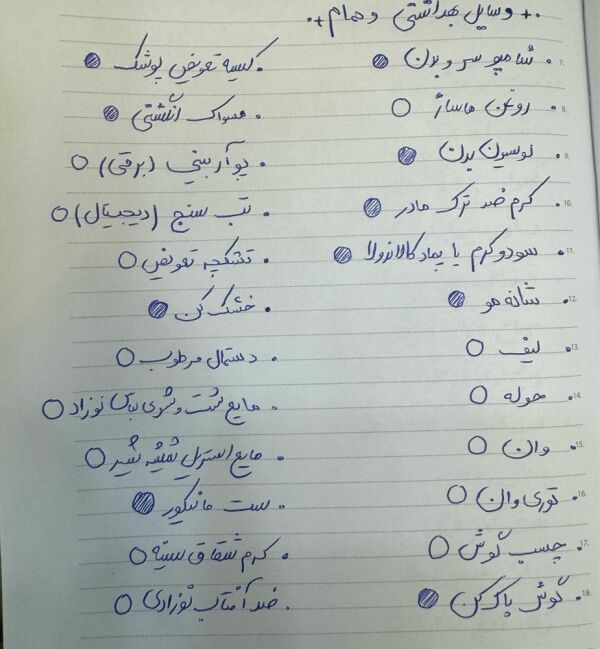 +. وسایل بهداشتی و حمام .+
7. شامپو سر و بدن
8. روغن ماساژ
9. لوسیون بدن
10. کرم ضد ترک مادر
11. سودوکرم یا پماد کالاندولا
12. شانه مو
13. لیف
14. حوله
15. وان
16. توری وان
17. چسب گوش
18. گوش پاک کن
. کیسه تعویض پوشک
. مسواک انگشتی
. پوآر بینی (برقی)
. تب سنج (دیجیتال)
. تشکچه تعویض
. خشک کن
. دستمال مرطوب
. مایع شست و شوی لباس نوزاد
. مایع استریل شیشه شیر
. ست مانیکور
. کرم شقاق سینه
. ضد آفتاب نوزادی